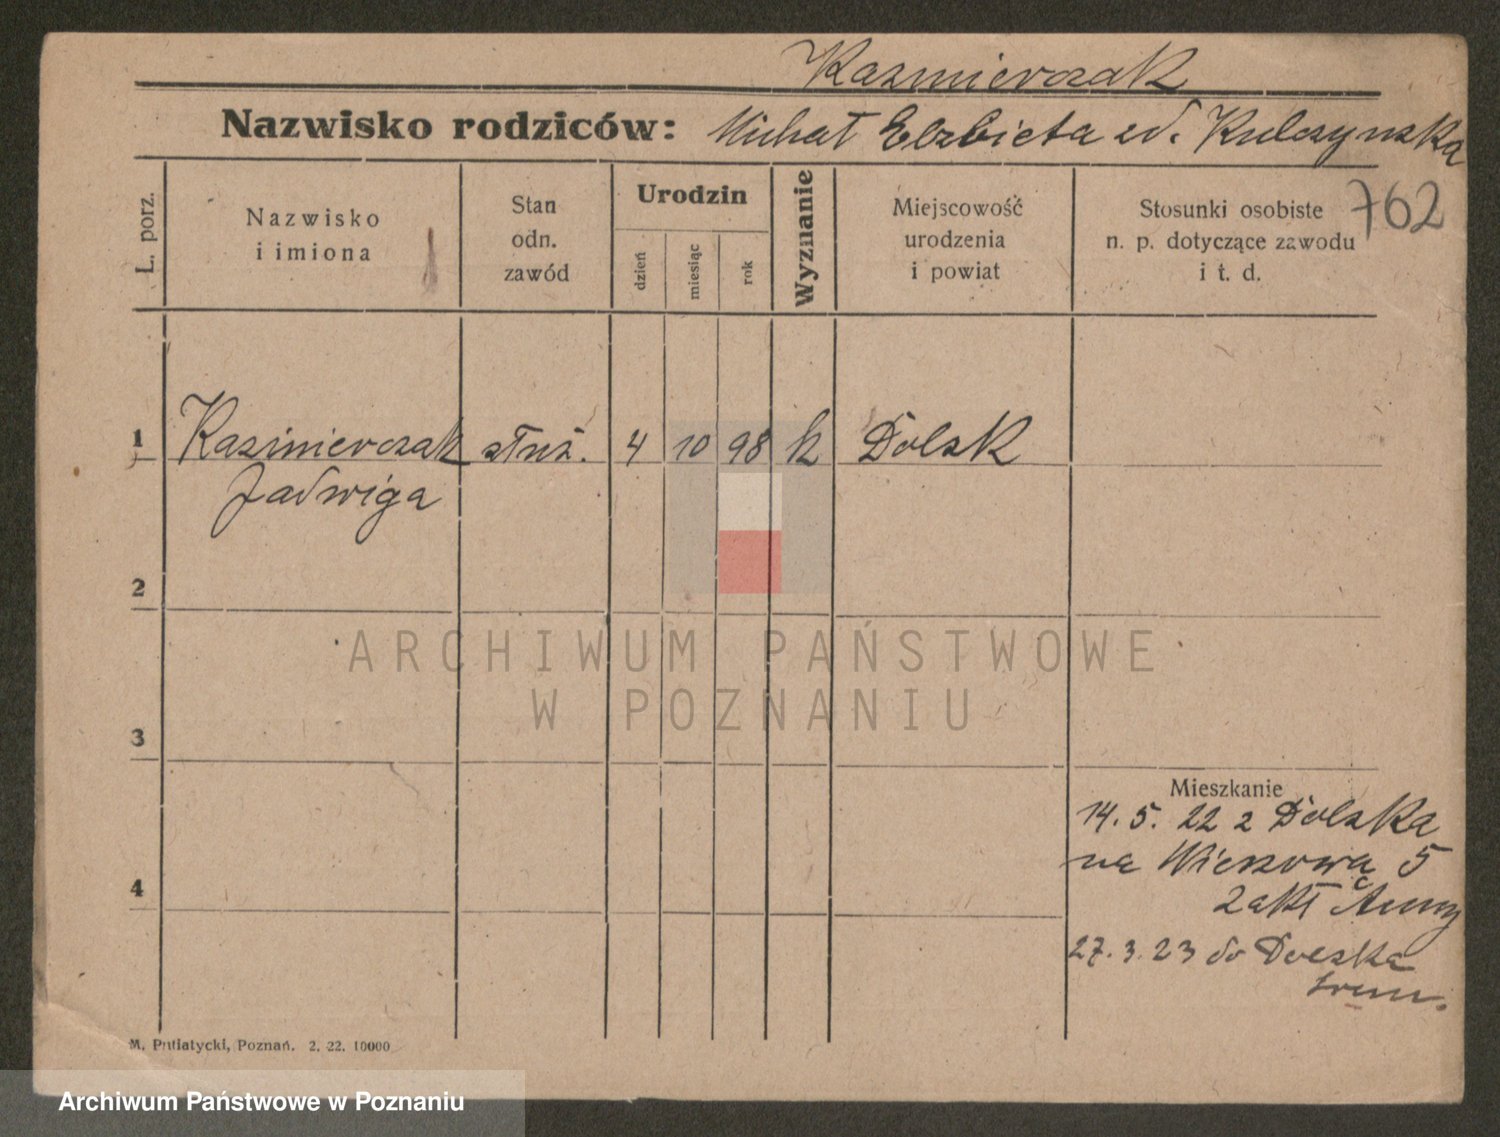 Kazmierczak
Nazwisko rodziców: Michał Elzbieta zd. Kulczynska
762
L. porz.
Nazwisko
i imiona
Stan
odn.
zawód
Urodzin
dzień
miesiąc
rok
Wyznanie
Miejscowość
urodzenia
i powiat
Stosunki osobiste
n. p. dotyczące zawodu
i t. d.
1 Kazimierczak służ. 4 10 98 k Dolsk
Jadwiga
2
3
4
ARCHIWUM PAŃSTWOWE
W POZNANIU
Mieszkanie
14. 5. 22 z Dolska
na 5
Zakł Anny
27. 3. 23 do Dolska
M. Putiatycki, Poznań. 2. 22. 10000
Archiwum Państwowe w Poznaniu